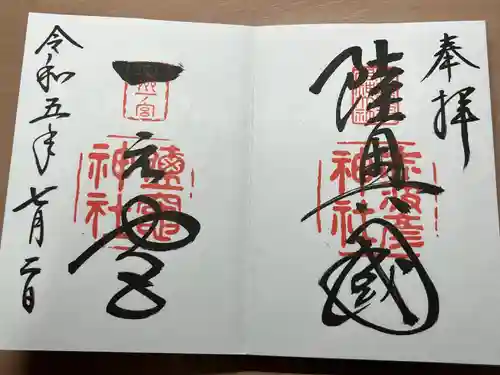 奉拝
陸奥國
志波彦
神社
一之宮
鹽竈
神社
令和五年七月二日